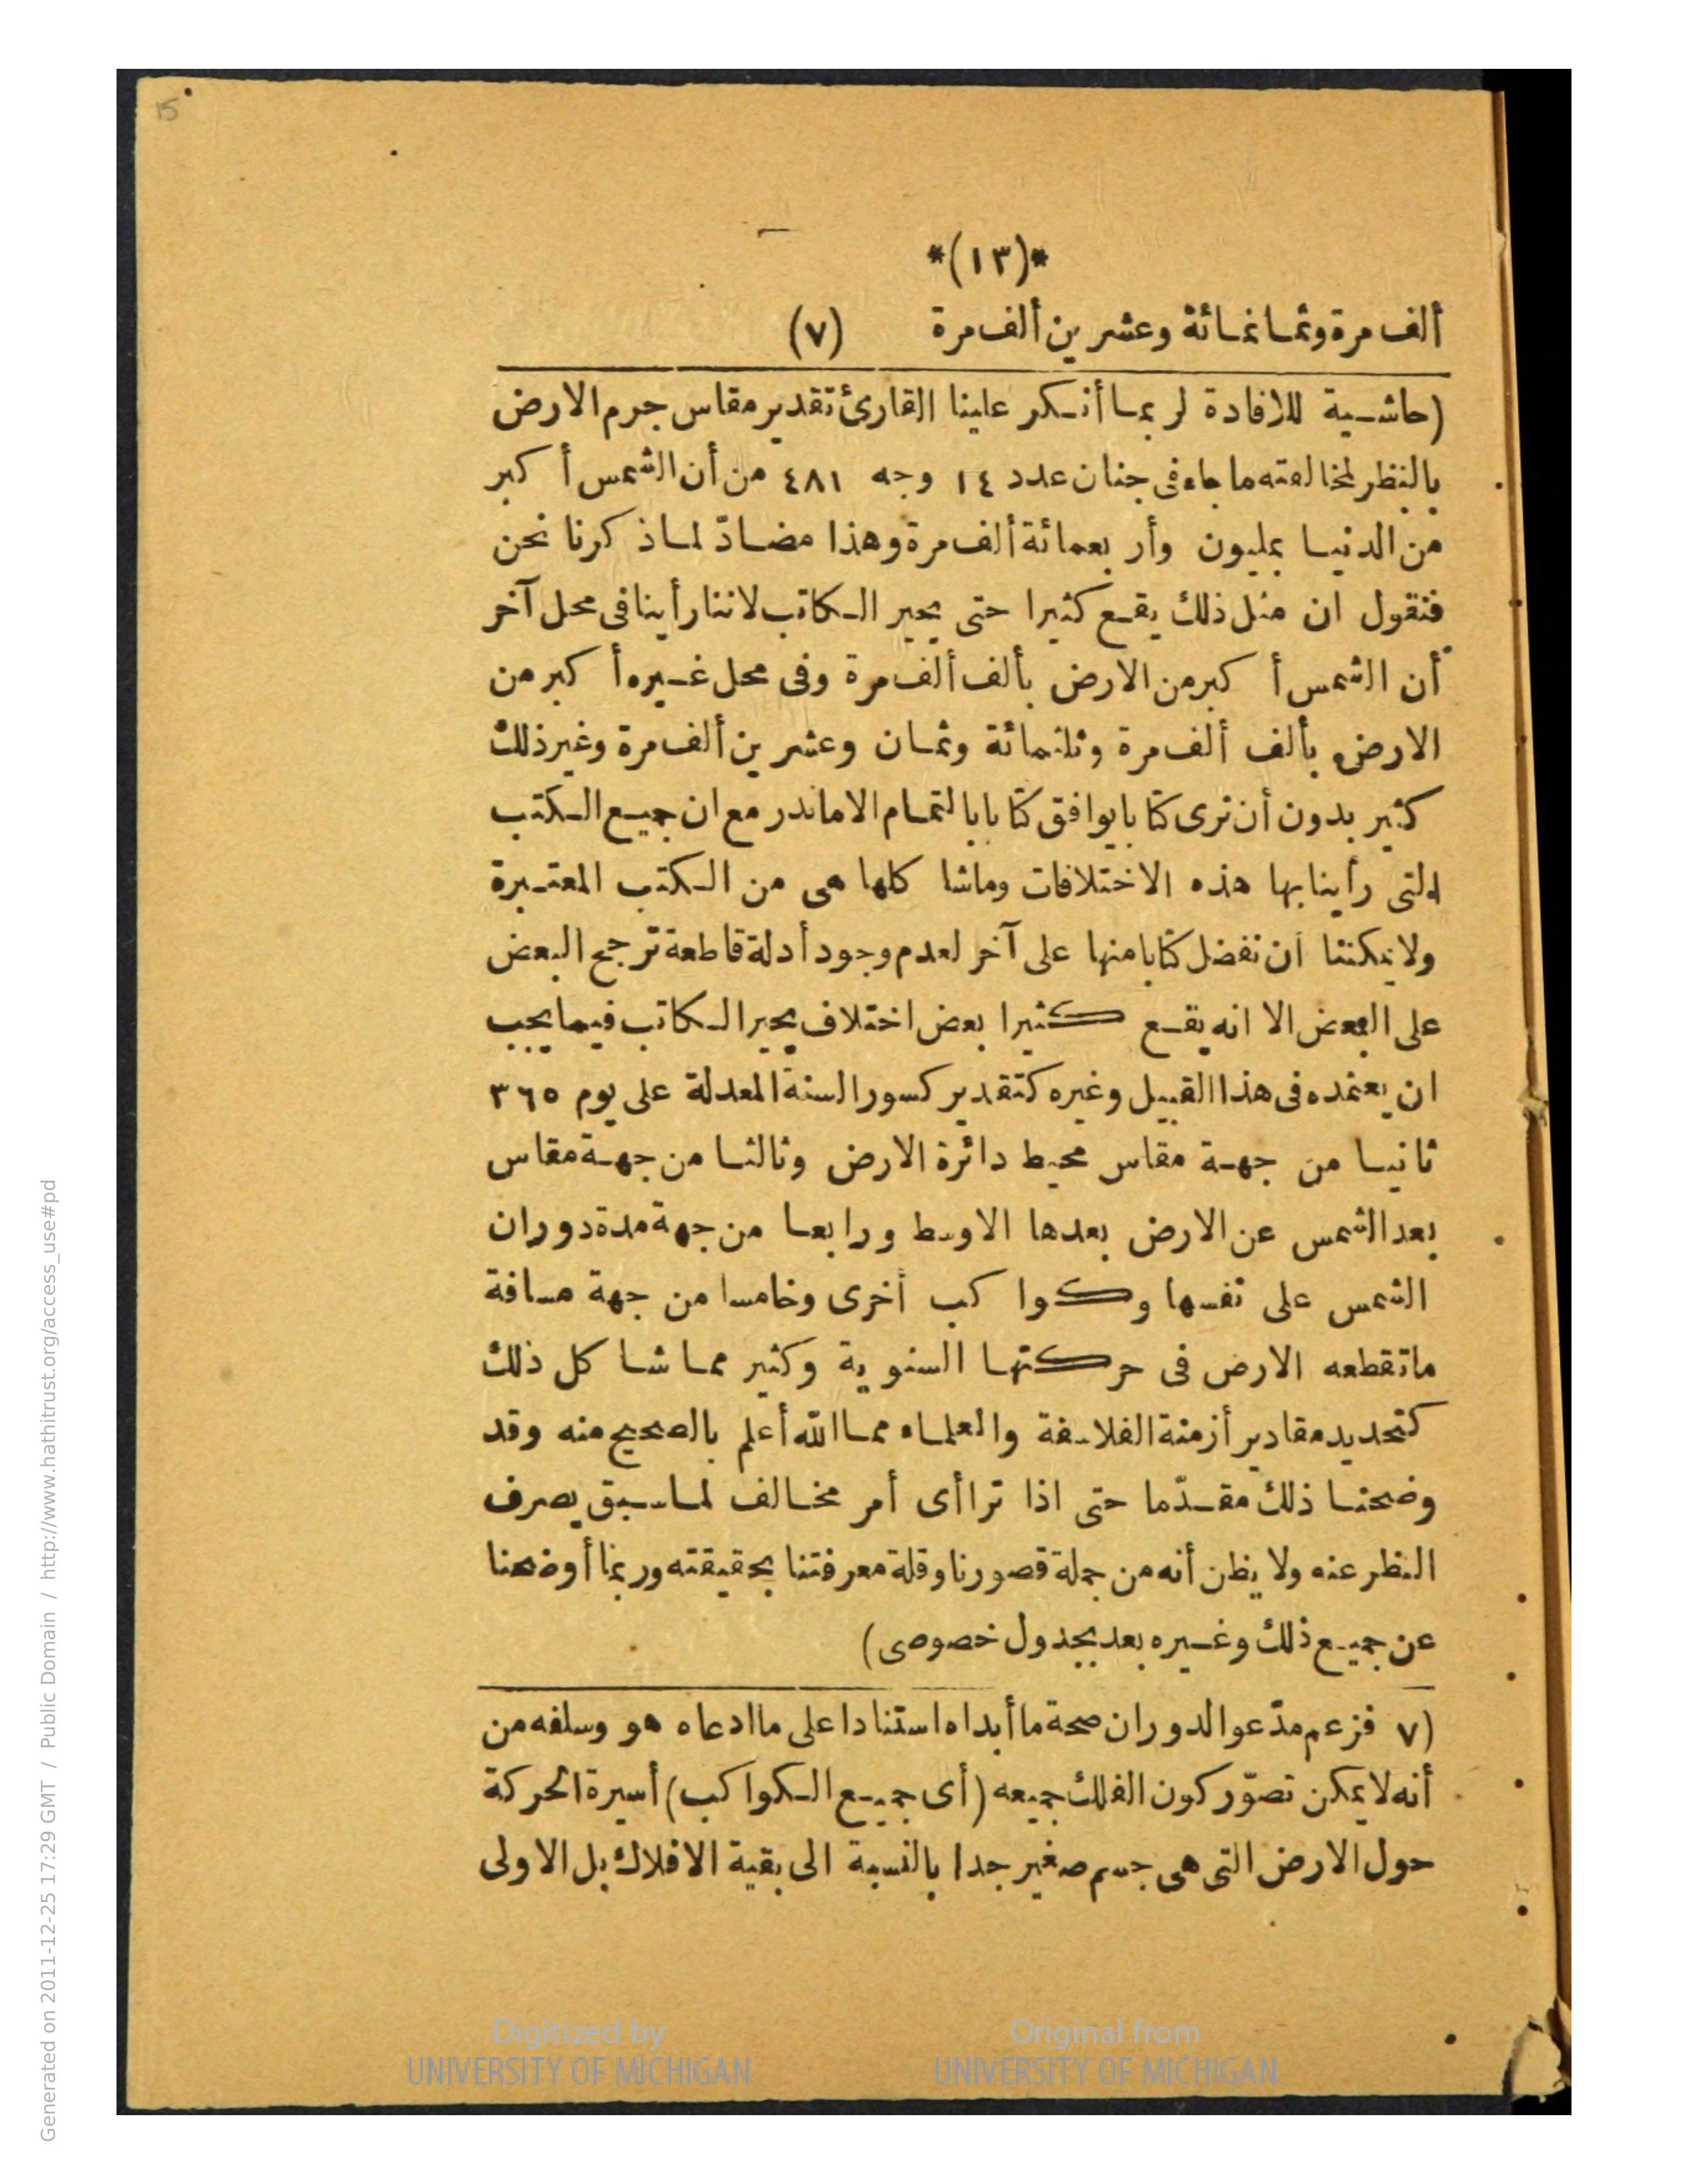 15
*(١٣)*
ألف مرة وثمانمائة وعشرين ألف مرة (٧)
(حاشية للافادة لربما أنكر علينا القارئ تقدير مقاس جرم الارض
بالنظر لمخالفته ما جاء فى جنان عدد ١٤ وجه ٤٨١ من أن الشمس أكبر
من الدنيا بمليون وأربعمائة ألف مرة وهذا مضادّ لما ذكرنا نحن
فنقول ان مثل ذلك يقع كثيرا حتى يحير الكاتب لاننا رأينا فى محل آخر
أن الشمس أكبر من الارض بألف ألف مرة وفى محل غيره أكبر من
الارض بألف ألف مرة وثلثمائة وثمان وعشرين ألف مرة وغير ذلك
كثير بدون أن ترى كتابا يوافق كتابا بالتمام الا ما ندر مع ان جميع الكتب
التى رأينا بها هذه الاختلافات وماشا كلها هى من الكتب المعتبرة
ولا يمكننا ان نفضل كتابا منها على آخر لعدم وجود أدلة قاطعة ترجح البعض
على البعض الا انه يقع كثيرا بعض اختلاف يحير الكاتب فيما يجب
ان يعتمده فى هذا القبيل وغيره كتقدير كسور السنة المعدلة على يوم ٣٦٥
ثانيا من جهة مقاس محيط دائرة الارض وثالثا من جهة مقاس
بعد الشمس عن الارض بعدها الاوسط ورابعا من جهة مدة دوران
الشمس على نفسها وكواكب أخرى وخامسا من جهة مسافة
ما تقطعه الارض فى حركتها السنوية وكثير مما شا كل ذلك
كتحديد مقادير أزمنة الفلاسفة والعلماء مما الله أعلم بالصحيح منه وقد
وضحنا ذلك مقدّما حتى اذا تراأى أمر مخالف لما سبق يصرف
النظر عنه ولا يظن أنه من جملة قصورنا وقلة معرفتنا بحقيقته وربما أوضحنا
عن جميع ذلك وغيره بعد بجدول خصوصى)
(٧ فزعم مدّعو الدوران صحة ما أبداه استنادا على ما ادعاه هو وسلفه من
أنه لا يمكن تصوّر كون الفلك جميعه (أى جميع الكواكب) أسيرة الحركة
حول الارض التى هى جسم صغير جدا بالنسبة الى بقية الافلاك بل الاولى
Digitized by
UNIVERSITY OF MICHIGAN
Original from
UNIVERSITY OF MICHIGAN
Generated on 2011-12-25 17:29 GMT / Public Domain / http://www.hathitrust.org/access_use#pd